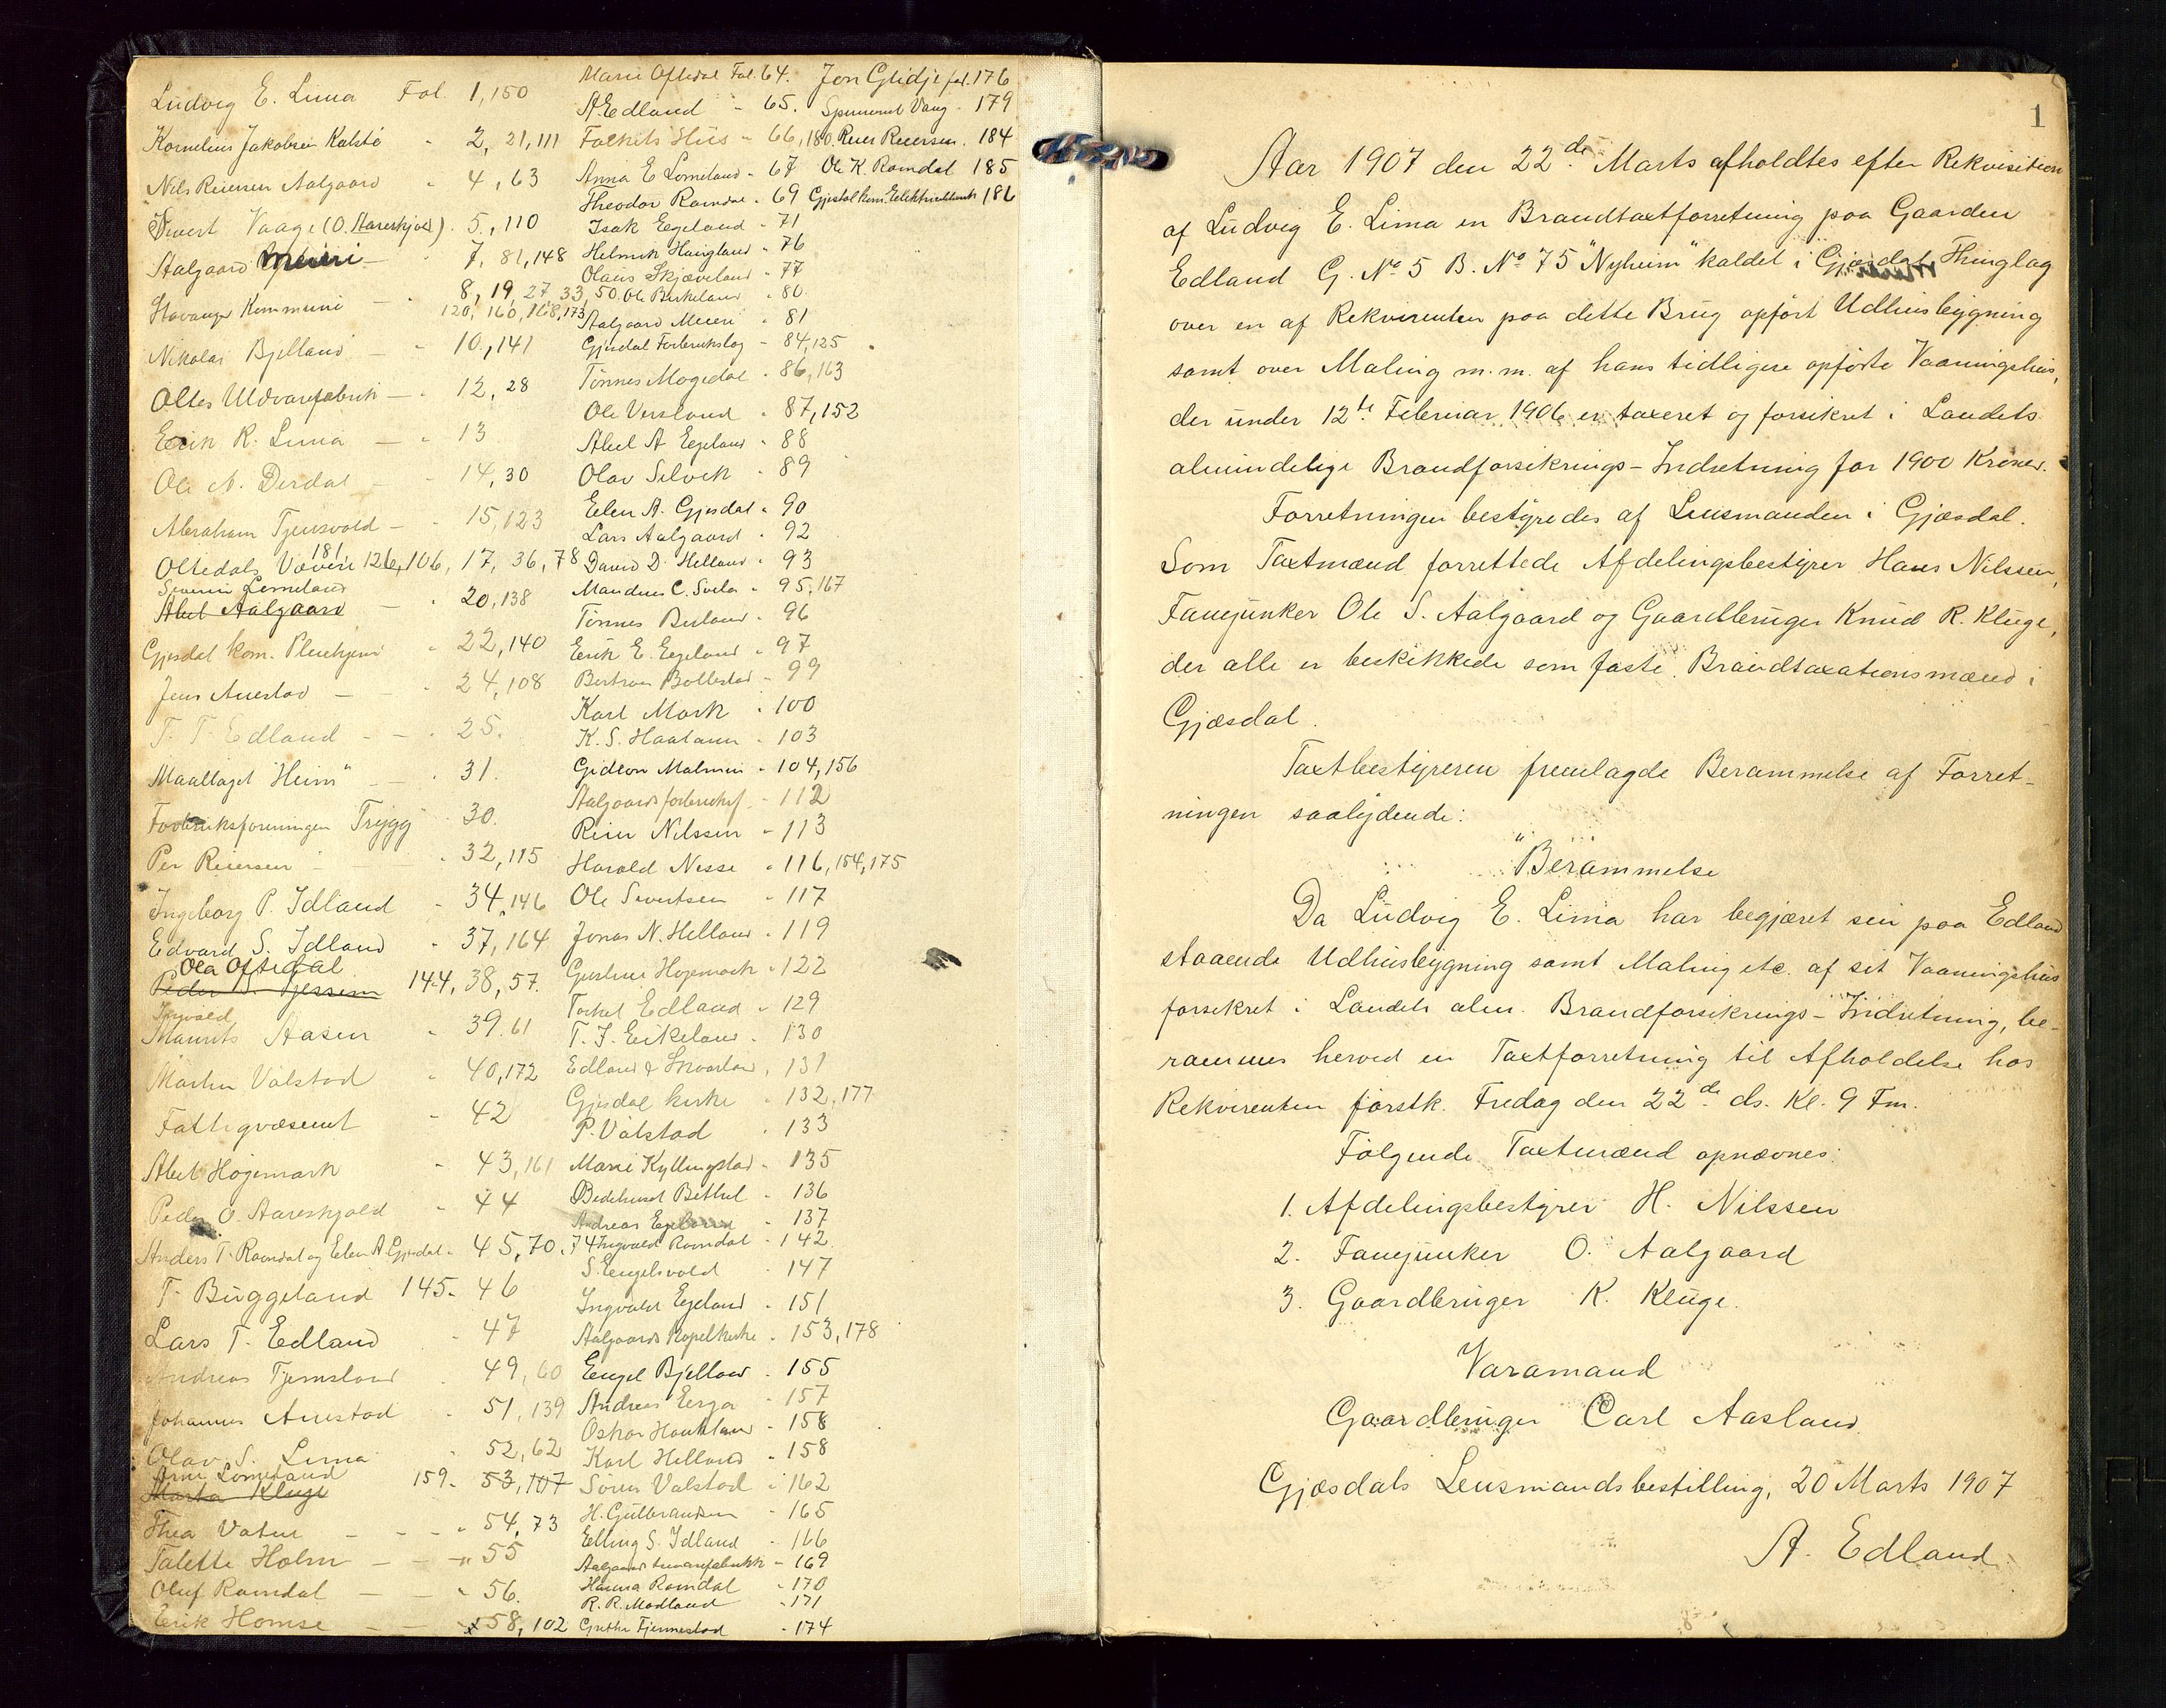 Ludvig E. Lima Fol. 1,150
Kornelius Jakobsen Kalstø - 2, 21, 111
Nils Reiersen Aalgaard - 4, 63
Sivert Vaage (O. Aareskjold). 5, 110
Aalgaard Meieri - 7, 81, 148
Stavanger Kommune - 8, 19, 27, 33, 50.
120, 160, 168, 173
Nikolai Bjelland - 10, 141
Oltes Uldvarefabrik - 12, 28
Erik R. Lima - 13
Ole N. Dirdal - 14, 30
Abraham Tjensvold - 15, 123
181
Oltedals Væveri 126, 106, 17, 36, 78
Severin Lomeland
Abel Aalgaard - 20, 138
Gjesdal kom. Pleiehjem - 22, 140
Jens Auestad - 24, 108
T. T. Edland - 25.
Maallaget "Heim" - 31.
Forbruksforeningen Trygg 30.
Per Reiersen - 32, 115
Ingeborg P. Idland - 34, 146
Edvard S. Idland - 37, 164
Ola Oftedal
Peder B. Tjessem 144, 38, 57.
Ingvald
Maurits Aasen - 39, 61
Martin Valstad - 40, 172
Fattigvæsenet - 42
Abel Høgemark - 43, 161
Peder O. Aareskjold - 44
Anders T. Ramdal og Elen A. Gjesdal - 45, 70, 74
T. Buggeland 145 - 46
Lars T. Edland - 47
Andreas Tjemsland 49, 60
Johannes Auestad - 51, 139
Olav S. Lima - 52, 62
Arne Lomeland
Marta Kluge 159 - 53, 107
Thea Vatne - 54, 73
Talette Holm - " 55
Oluf Ramdal - " 56.
Erik Homse - 58, 102
Marie Oftedal Fol. 64.
A. Edland - 65.
Folkets Hus - 66, 180
Anna E Lomeland - 67
Theodor Ramdal - 69
Isak Egeland - 71
Helmik Haugland - 76
Olaus Skjæveland - 77
Ole Birkeland - 80
Aalgaard Meieri - 81
Gjesdal Forbrukslag - 84, 125
Tønnes Mogedal - 86, 163
Ole Versland - 87, 152
Abel A Egeland - 88
Olav Selvik - 89
Elen A. Gjesdal - 90
Lars Aalgaard - 92
David D. Helland - 93
Mandius C. Svela - 95, 167
Tønnes Bueland - 96
Erik E. Egeland - 97
Bertran Bollestad - 99
Karl Mork - 100
K. S. Haaland - 103
Gideon Malmin - 104, 156
Aalgaards forbruksf. - 112
Reier Nilssen - 113
Harald Nesse - 116, 154, 175
Ole Sivertsen - 117
Jonas N. Helland - 119
Gustav Høgemark - 122
Torkel Edland - 129
T. J. Eikeland - 130
Edland & Skaarland, 131
Gjesdal kirke - 132, 177
P. Valstad - 133
Marie Kyllingstad - 135
Bedehuset Bethel - 136
Andreas Egeland - 137
Ingvald Ramdal - 142
S. Engelsvold - 147
Ingvald Egeland - 151
Aalgaards Kapelkirke - 153, 178
Engel Bjelland - 155
Andreas Erga - 157
Oskar Haukland - 158
Karl Helland - 158
Søren Valstad - 162
H. Gulbrandsen - 165
Elling S. Idland - 166
Aalgaards uvarefabrikk - 169
Hanna Ramdal - 170
R. R. Madland - 171
Grethe Fjermestad - 174
Jon Glidje fol. 176
Vaug - 179
Reier Reiersen. 184
Ole K. Ramdal 185
Gjestal kom. Elektrisitetsverk 186
1
Aar 1907 den 22de Marts afholdtes efter Rekvisition
af Ludvig E. Lima en Brandtaxtforretning paa Gaarden
Edland G. No 5 B. No 75 "Nyheim" kaldet i Gjæsdal Thinglag
over en af Rekvirenten paa dette Brug opført Udhusbygning
samt over Maling m. m. af hans tidligere opførte Vaaningshus,
der under 12te Februar 1906 er taxeret og forsikret i Landets
almindelige Brandforsikrings-Indretning for 1900 Kroner.
Forretningen bestyredes af Lensmanden i Gjæsdal.
Som Taxtmænd forrettede Afdelingsbestyrer Hans Nilssen,
Fanejunker Ole S. Aalgaard og Gaardbruger Knud R. Kluge,
der alle er beskikkede som faste Brandtaxationsmænd i
Gjæsdal.
Taxtbestyreren fremlagde Berammelse af Forret-
ningen saalydende:
"Berammelse
Da Ludvig E. Lima har begjæret sin paa Edland
staaende Udhusbygning samt Maling etc. af sit Vaaningshus
forsikret i Landets alm. Brandforsikrings-Indretning, be-
rammes herved en Taxtforretning til Afholdelse hos
Rekvirenten førstk. Fredag den 22de ds. Kl. 9 Fm.
Følgende Taxtmænd opnævnes:
1. Afdelingsbestyrer H. Nilssen
2. Fanejunker O. Aalgaard
3. Gaardbruger K. Kluge.
Varamand
Gaardbruger Carl Aasland
Gjæsdals Lensmandsbestilling, 20 Marts 1907
A. Edland